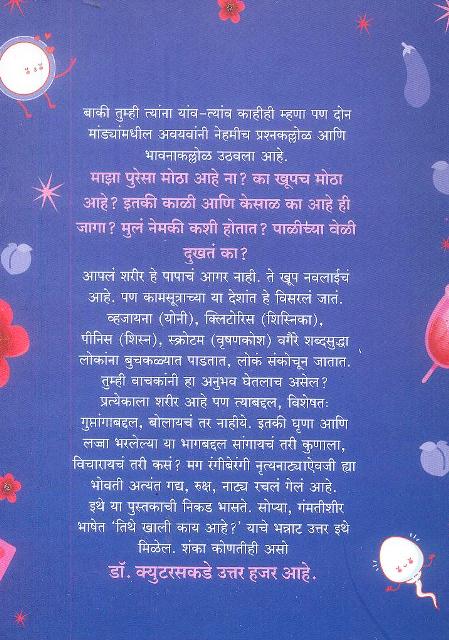 बाकी तुम्ही त्यांना यांव-त्यांव काहीही म्हणा पण दोन
मांड्यांमधील अवयवांनी नेहमीच प्रश्नकल्लोळ आणि
भावनाकल्लोळ उठवला आहे.
माझा पुरेसा मोठा आहे ना? का खूपच मोठा
आहे? इतकी काळी आणि केसाळ का आहे ही
जागा? मुलं नेमकी कशी होतात? पाळीच्या वेळी
दुखतं का?
आपलं शरीर हे पापाचं आगर नाही. ते खूप नवलाईचं
आहे. पण कामसूत्राच्या या देशांत हे विसरलं जातं.
व्हजायना (योनी), क्लिटोरिस (शिस्निका),
पीनिस (शिस्न), स्क्रोटम (वृषणकोश) वगैरे शब्दसुद्धा
लोकांना बुचकळ्यात पाडतात, लोकं संकोचून जातात.
तुम्ही वाचकांनी हा अनुभव घेतलाच असेल?
प्रत्येकाला शरीर आहे पण त्याबद्दल, विशेषतः
गुप्तांगाबद्दल, बोलायचं तर नाहीये. इतकी घृणा आणि
लज्जा भरलेल्या या भागबद्दल सांगायचं तरी कुणाला,
विचारायचं तरी कसं? मग रंगीबेरंगी नृत्यनाट्याऐवजी ह्या
भोवती अत्यंत गद्य, रुक्ष, नाट्य रचलं गेलं आहे.
इथे या पुस्तकाची निकड भासते. सोप्या, गंमतीशीर
भाषेत 'तिथे खाली काय आहे?' याचे भन्नाट उत्तर इथे
मिळेल. शंका कोणतीही असो
डॉ. क्युटरसकडे उत्तर हजर आहे.